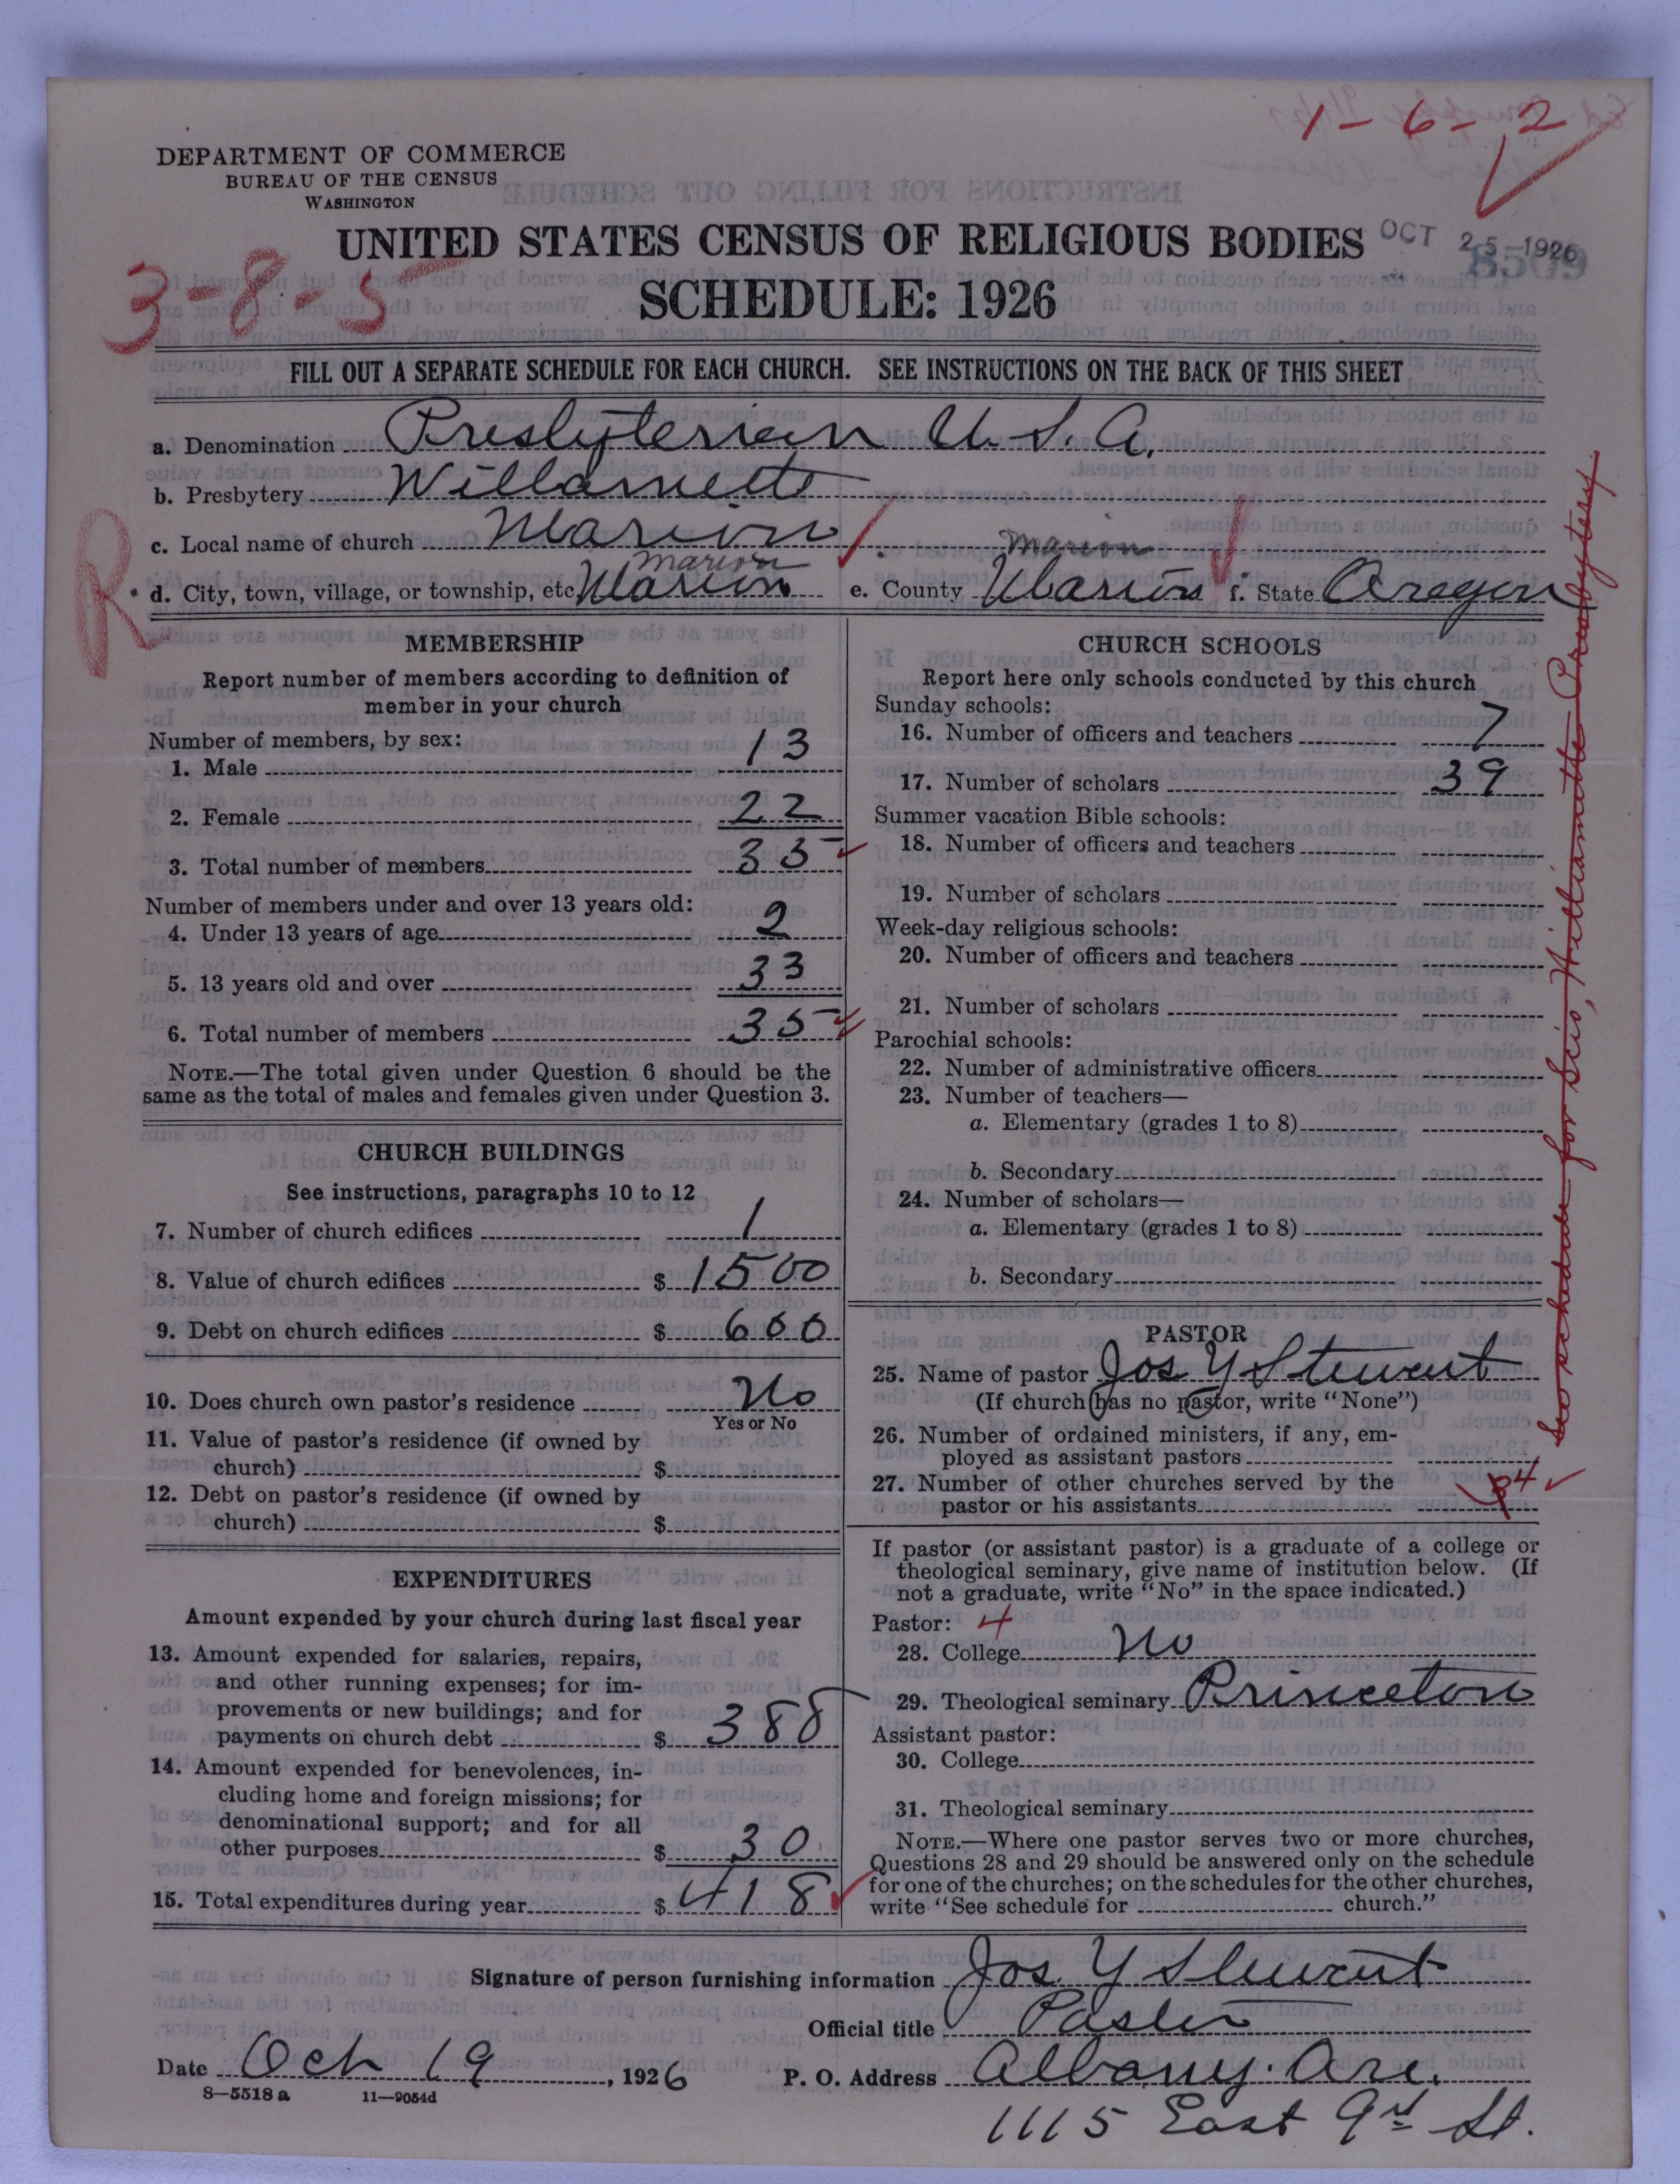 1-6-2
DEPARTMENT OF COMMERCE
BUREAU OF THE CENSUS
WASHINGTON
UNITED STATES CENSUS OF RELIGIOUS BODIES
OCT 25 1926
8509
3-8-5
SCHEDULE: 1926
FILL OUT A SEPARATE SCHEDULE FOR EACH CHURCH. SEE INSTRUCTIONS ON THE BACK OF THIS SHEET
a. Denomination Presbyterian U.S.A.
b. Presbytery Willamette
R
c. Local name of church Marion
Marion Marion
d. City, town, village, or township, etc. Marion e. County Marion f. State Oregon
MEMBERSHIP
Report number of members according to definition of
member in your church
Number of members, by sex:
1. Male 13
2. Female 22
3. Total number of members 35
Number of members under and over 13 years old:
4. Under 13 years of age 2
5. 13 years old and over 33
6. Total number of members 35
NOTE.—The total given under Question 6 should be the
same as the total of males and females given under Question 3.
CHURCH BUILDINGS
See instructions, paragraphs 10 to 12
7. Number of church edifices 1
8. Value of church edifices $ 1500
9. Debt on church edifices $ 600
10. Does church own pastor's residence No
Yes or No
11. Value of pastor's residence (if owned by
church) $
12. Debt on pastor's residence (if owned by
church) $
EXPENDITURES
Amount expended by your church during last fiscal year
13. Amount expended for salaries, repairs,
and other running expenses; for im-
provements or new buildings; and for
payments on church debt $ 388
14. Amount expended for benevolences, in-
cluding home and foreign missions; for
denominational support; and for all
other purposes $ 30
15. Total expenditures during year $ 418
CHURCH SCHOOLS
Report here only schools conducted by this church
Sunday schools:
16. Number of officers and teachers 7
17. Number of scholars 39
Summer vacation Bible schools:
18. Number of officers and teachers
19. Number of scholars
Week-day religious schools:
20. Number of officers and teachers
21. Number of scholars
Parochial schools:
22. Number of administrative officers
23. Number of teachers—
a. Elementary (grades 1 to 8)
b. Secondary
24. Number of scholars—
a. Elementary (grades 1 to 8)
b. Secondary
PASTOR
25. Name of pastor Jos Y Stewart
(If church has no pastor, write "None")
26. Number of ordained ministers, if any, em-
ployed as assistant pastors
27. Number of other churches served by the
pastor or his assistants 4
If pastor (or assistant pastor) is a graduate of a college or
theological seminary, give name of institution below. (If
not a graduate, write "No" in the space indicated.)
Pastor: 4
28. College No
29. Theological seminary Princeton
Assistant pastor:
30. College
31. Theological seminary
NOTE.—Where one pastor serves two or more churches,
Questions 28 and 29 should be answered only on the schedule
for one of the churches; on the schedules for the other churches,
write "See schedule for church."
See schedule for Scio, Willamette Presbytery
Signature of person furnishing information Jos. Y Stewart
Official title Pastor
Date Oct 19, 1926 P. O. Address Albany. Ore.
8—5518 a 11—9054d
1115 East 9th St.